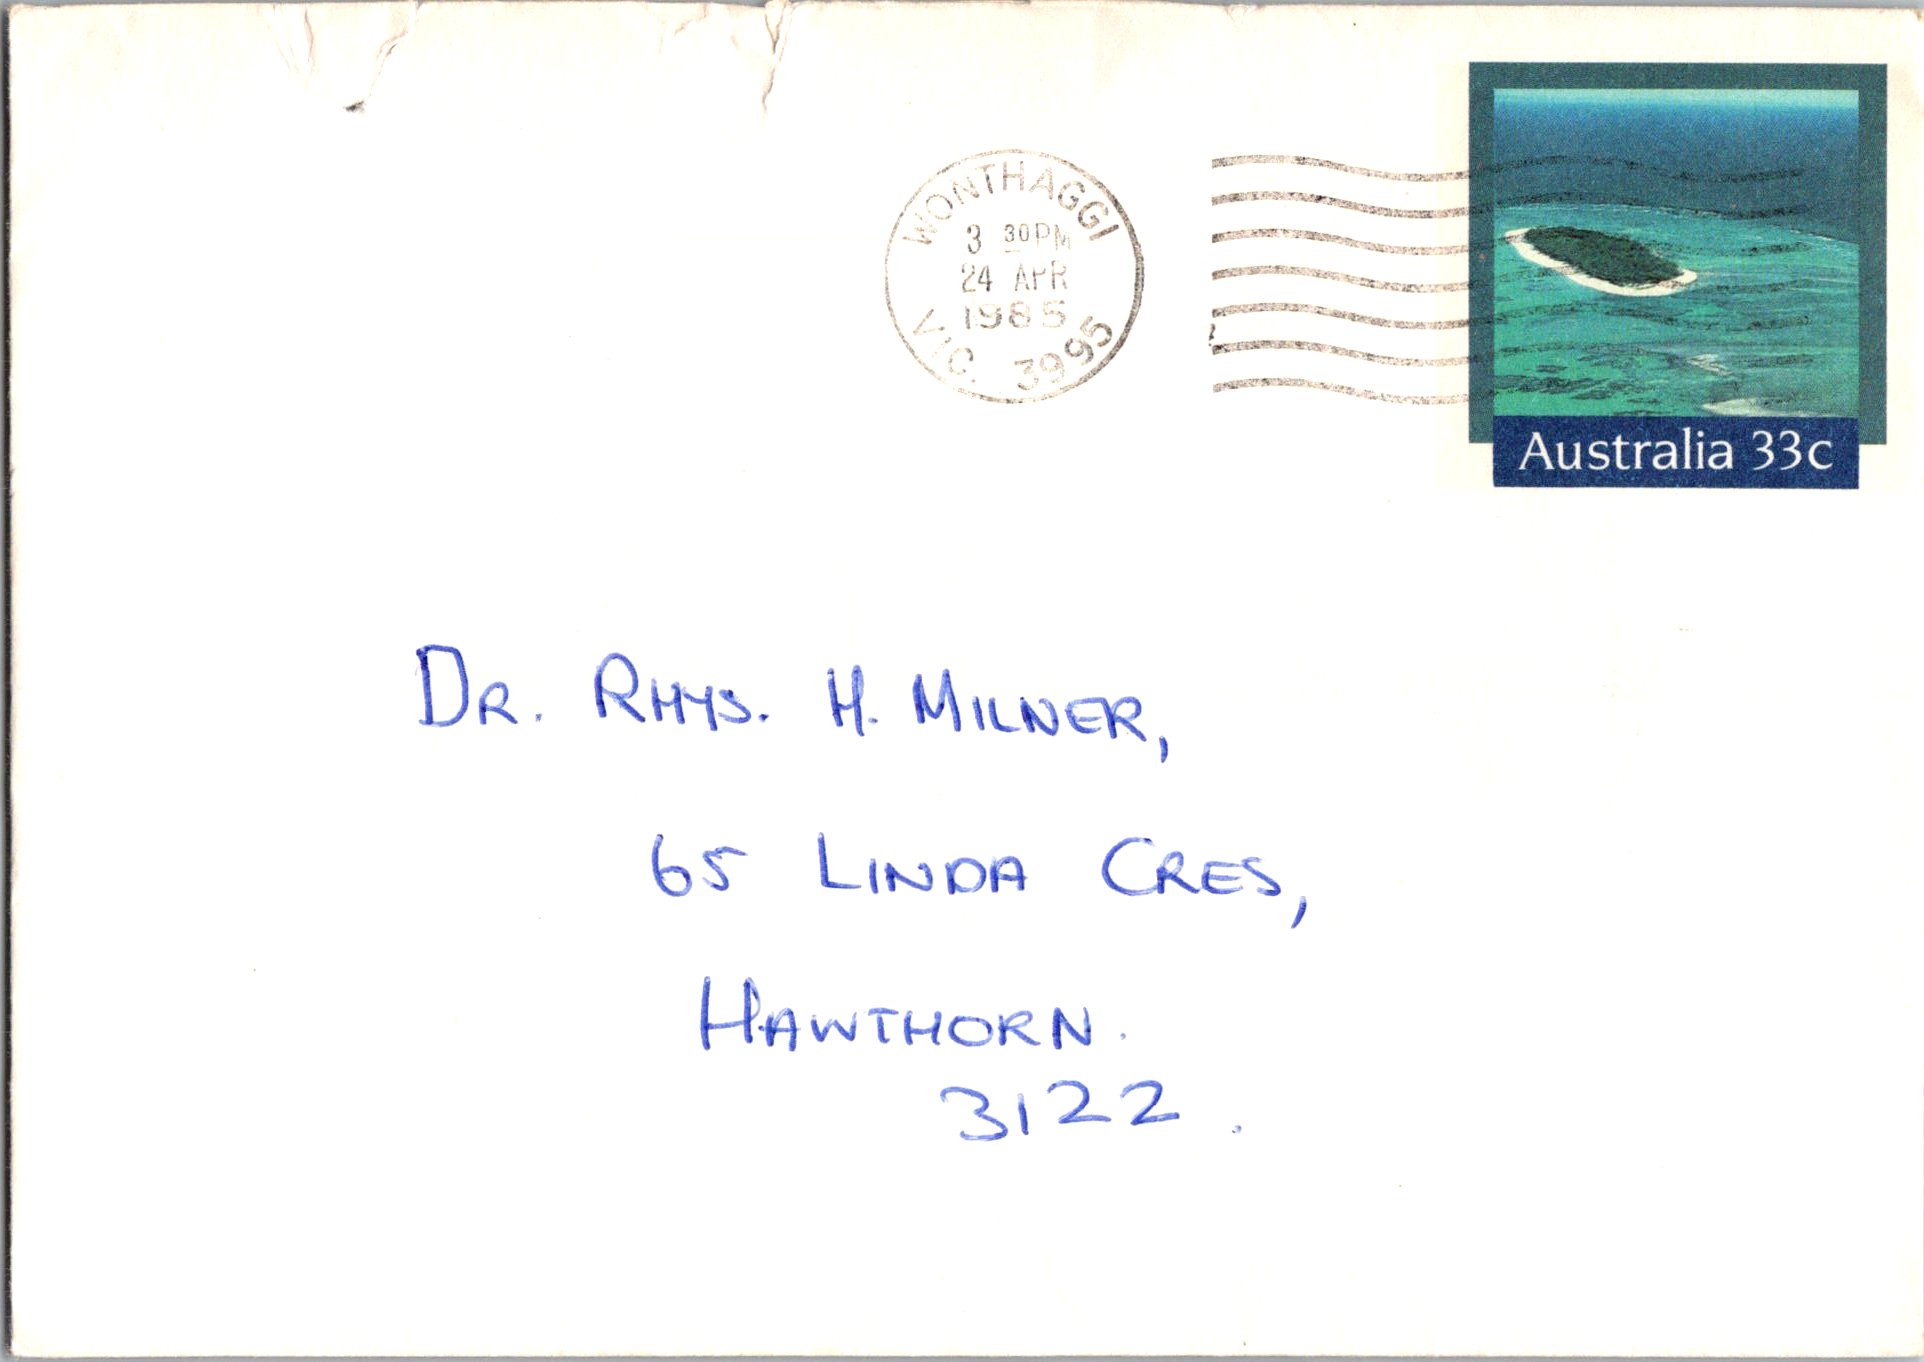 WONTHAGGI
3 30PM
24 APR
1985
VIC. 3995
Australia 33c
DR. RHYS. H. MILNER,
65 LINDA CRES,
HAWTHORN.
3122.